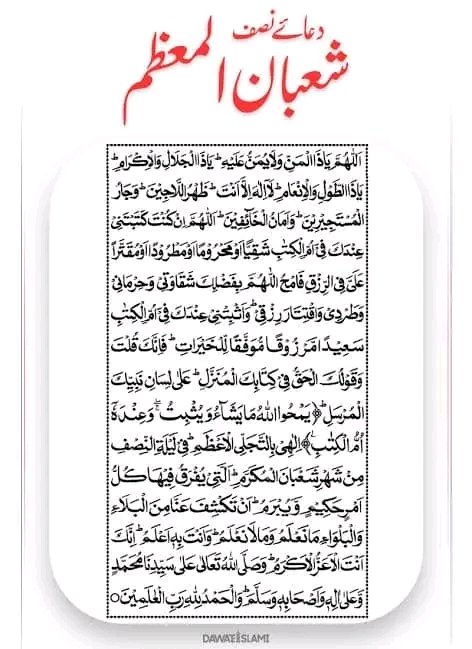 دعائے نصف
شعبان المعظم
اَللّٰهُمَّ يَاذَا الْمَنِّ وَلَا يُمَنُّ عَلَيْهِ ؕ يَاذَا الْجَلَالِ وَالْاِكْرَامِ ؕ
يَاذَا الطَّوْلِ وَالْاِنْعَامِ ؕ لَآ اِلٰهَ اِلَّا اَنْتَ ؕ ظَهْرُ اللَّاجِيْنَ ؕ وَجَارُ
الْمُسْتَجِيْرِيْنَ ؕ وَاَمَانُ الْخَآئِفِيْنَ ؕ اَللّٰهُمَّ اِنْ كُنْتَ كَتَبْتَنِيْ
عِنْدَكَ فِيْٓ اُمِّ الْكِتٰبِ شَقِيًّا اَوْ مَحْرُوْمًا اَوْ مَطْرُوْدًا اَوْ مُقَتَّرًا
عَلَيَّ فِي الرِّزْقِ فَامْحُ اللّٰهُمَّ بِفَضْلِكَ شَقَاوَتِيْ وَحِرْمَانِيْ
وَطَرْدِيْ وَاقْتِتَارَ رِزْقِيْ ؕ وَاَثْبِتْنِيْ عِنْدَكَ فِيْٓ اُمِّ الْكِتٰبِ
سَعِيْدًا مَّرْزُوْقًا مُّوَفَّقًا لِّلْخَيْرَاتِ ؕ فَاِنَّكَ قُلْتَ
وَقَوْلُكَ الْحَقُّ فِيْ كِتَابِكَ الْمُنَزَّلِ ؕ عَلٰى لِسَانِ نَبِيِّكَ
الْمُرْسَلِ ؕ ﴿يَمْحُوا اللّٰهُ مَا يَشَآءُ وَيُثْبِتُ ۚ وَعِنْدَهٗٓ
اُمُّ الْكِتٰبِ﴾ اِلٰهِيْ بِالتَّجَلِّي الْاَعْظَمِ ؕ فِيْ لَيْلَةِ النِّصْفِ
مِنْ شَهْرِ شَعْبَانَ الْمُكَرَّمِ ؕ الَّتِيْ يُفْرَقُ فِيْهَا كُلُّ
اَمْرٍ حَكِيْمٍ وَّيُبْرَمُ ؕ اَنْ تَكْشِفَ عَنَّا مِنَ الْبَلَآءِ
وَالْبَلْوَآءِ مَا نَعْلَمُ وَمَا لَا نَعْلَمُ ؕ وَاَنْتَ بِهٖٓ اَعْلَمُ ؕ اِنَّكَ
اَنْتَ الْاَعَزُّ الْاَكْرَمُ ؕ وَصَلَّى اللّٰهُ تَعَالٰى عَلٰى سَيِّدِنَا مُحَمَّدٍ
وَّعَلٰٓى اٰلِهٖ وَاَصْحَابِهٖ وَسَلَّمَ ؕ وَالْحَمْدُ لِلّٰهِ رَبِّ الْعٰلَمِيْنَ ○
DAWATEISLAMI